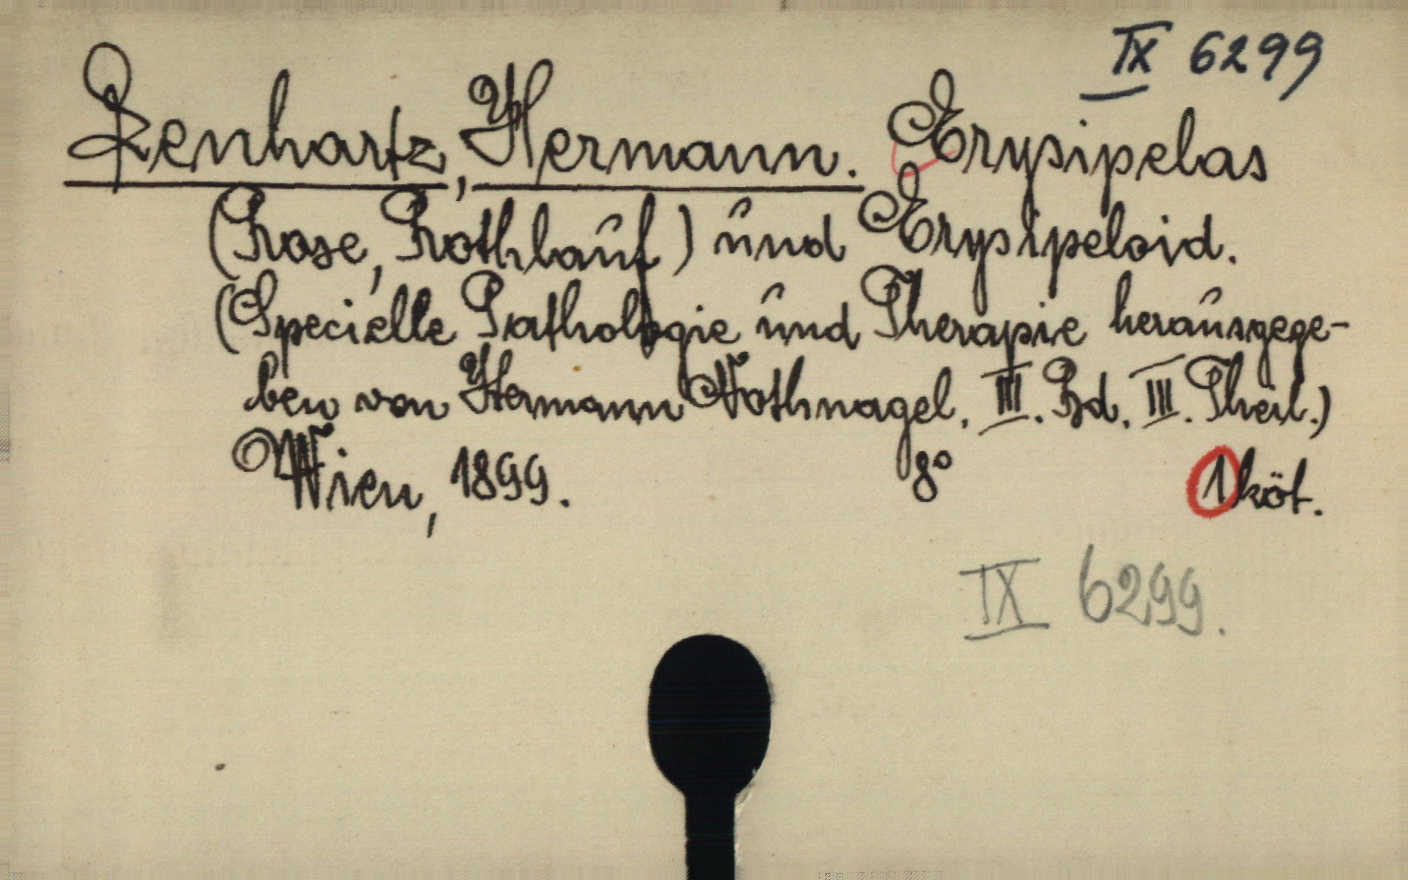 IX 6299
Lenhartz, Hermann. Erysipelas
(Rose, Rothlauf) und Erysipeloid.
(Specielle Pathologie und Therapie herausgege-
ben von Hermann Nothnagel. III. Bd. III. Theil.)
Wien, 1899. 8° 1 köt.
IX 6299.